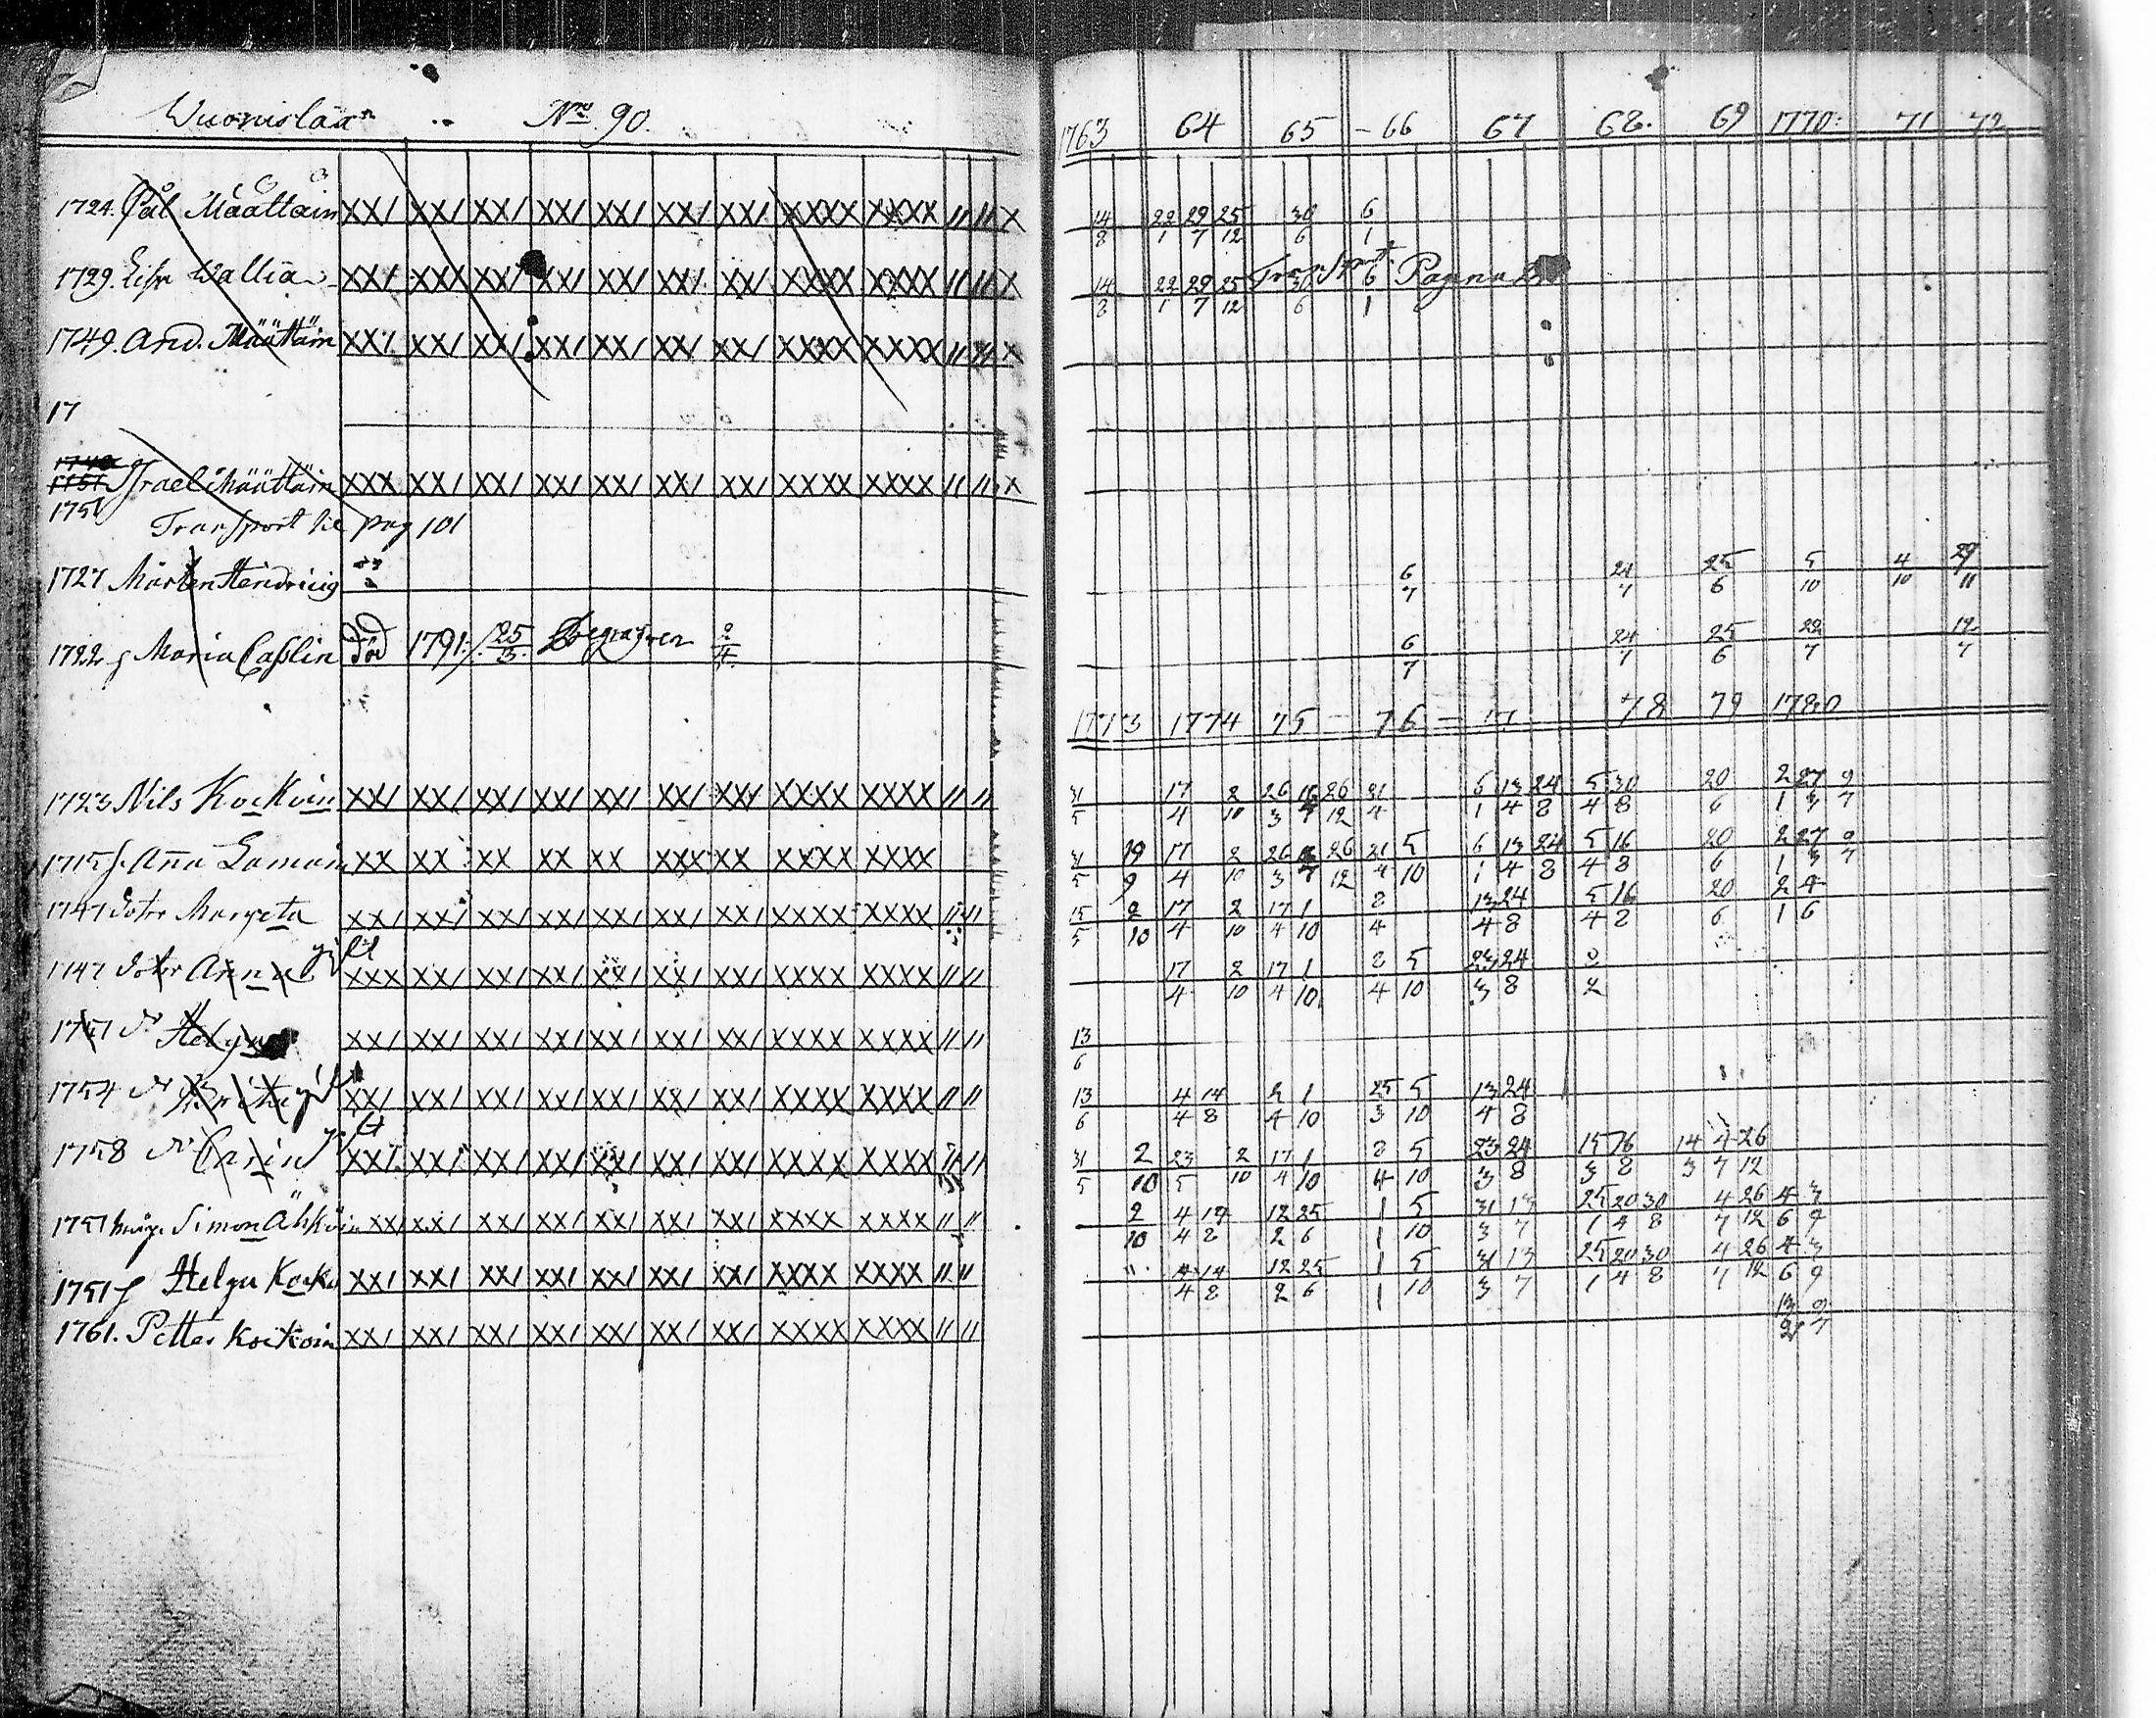 Wuonislax Nro 90.
1724. Pål Määttäin XX/ XX/ XX/ XX/ XX/ XX/ XX/ XXXX XXXX // // X
1729. Lisa Wallia XX/ XX/ XX/ XX/ XX/ XX/ XX/ XXXX XXXX // // X
1749. And. Määttäin XX/ XX/ XX/ XX/ XX/ XX/ XX/ XXXX XXXX // X
17
1751 Israel Määttäin XXX XX/ XX/ XX/ XX/ XX/ XX/ XXXX XXXX // // X
Transport til pag 101
1727 Mårten Hendricig
1722 h Maria Caßlin död 1791 25/3. Begrafven 2/4.
1723 Nils Kockoin XX/ XX/ XX/ XX/ XX/ XX/ XX/ XXXX XXXX // //
1715 h. Anna XX XX XX XX XX XX XX XXXX XXXX
1747 dotr Margeta XX/ XX/ XX/ XX/ XX/ XX/ XX/ XXXX XXXX // //
1747 dotr Anna gift XXX XX/ XX/ XX/ XX/ XX/ XX/ XXXX XXXX // //
1751 dr Helga XX/ XX/ XX/ XX/ XX/ XX/ XX/ XXXX XXXX // //
1754 dr gift XX/ XX/ XX/ XX/ XX/ XX/ XX/ XXXX XXXX // //
1758 dr Carin gift XX/ XX/ XX/ XX/ XX/ XX/ XX/ XXXX XXXX // //
1751 måg. Simon Ähköin XX XX/ XX/ XX/ XX/ XX/ XX/ XXXX XXXX // //
1751 h Helga Kocko XX/ XX/ XX/ XX/ XX/ XX/ XX/ XXXX XXXX // //
1761. Petter Kockoin XX/ XX/ XX/ XX/ XX/ XX/ XX/ XXXX XXXX // //
1763 64 65 66 67 68. 69 1770: 71 72
14 22 29 25 30 6
8 1 7 12 6 1
Transport Pagina
14 22 29 25 30 6
8 1 7 12 6 1
6 24 25 5 4 29
7 7 6 10 10 11
6 24 25 22 12
7 7 6 7 7
1773 1774 75 76 77 78 79 1780
31 17 2 26 16 26 21 6 13 24 5 30 20 2 27 9
5 4 10 3 7 12 4 1 4 8 4 8 6 1 3 7
31 19 17 2 26 26 21 5 6 13 24 5 16 20 2 27 9
5 9 4 10 3 7 12 4 10 1 4 8 4 8 6 1 3 7
15 2 17 2 17 1 8 13 24 5 16 20 2 4
5 10 4 10 4 10 4 4 8 4 8 6 1 6
17 2 17 1 8 5 23 24 2
4 10 4 10 4 10 3 8 2
13
6
13 4 14 2 1 25 5 13 24
6 4 8 4 10 3 10 4 8
31 2 23 2 17 1 8 5 23 24 15 16 14 4 26
5 10 5 10 4 10 4 10 3 8 3 8 3 7 12
2 4 14 12 25 1 5 31 13 25 20 30 4 26 4 3
10 4 8 2 6 1 10 3 7 1 4 8 7 12 6 9
4 14 12 25 1 5 31 13 25 20 30 4 26 4 3
4 8 2 6 1 10 3 7 1 4 8 7 12 6 9
13 9
2 7